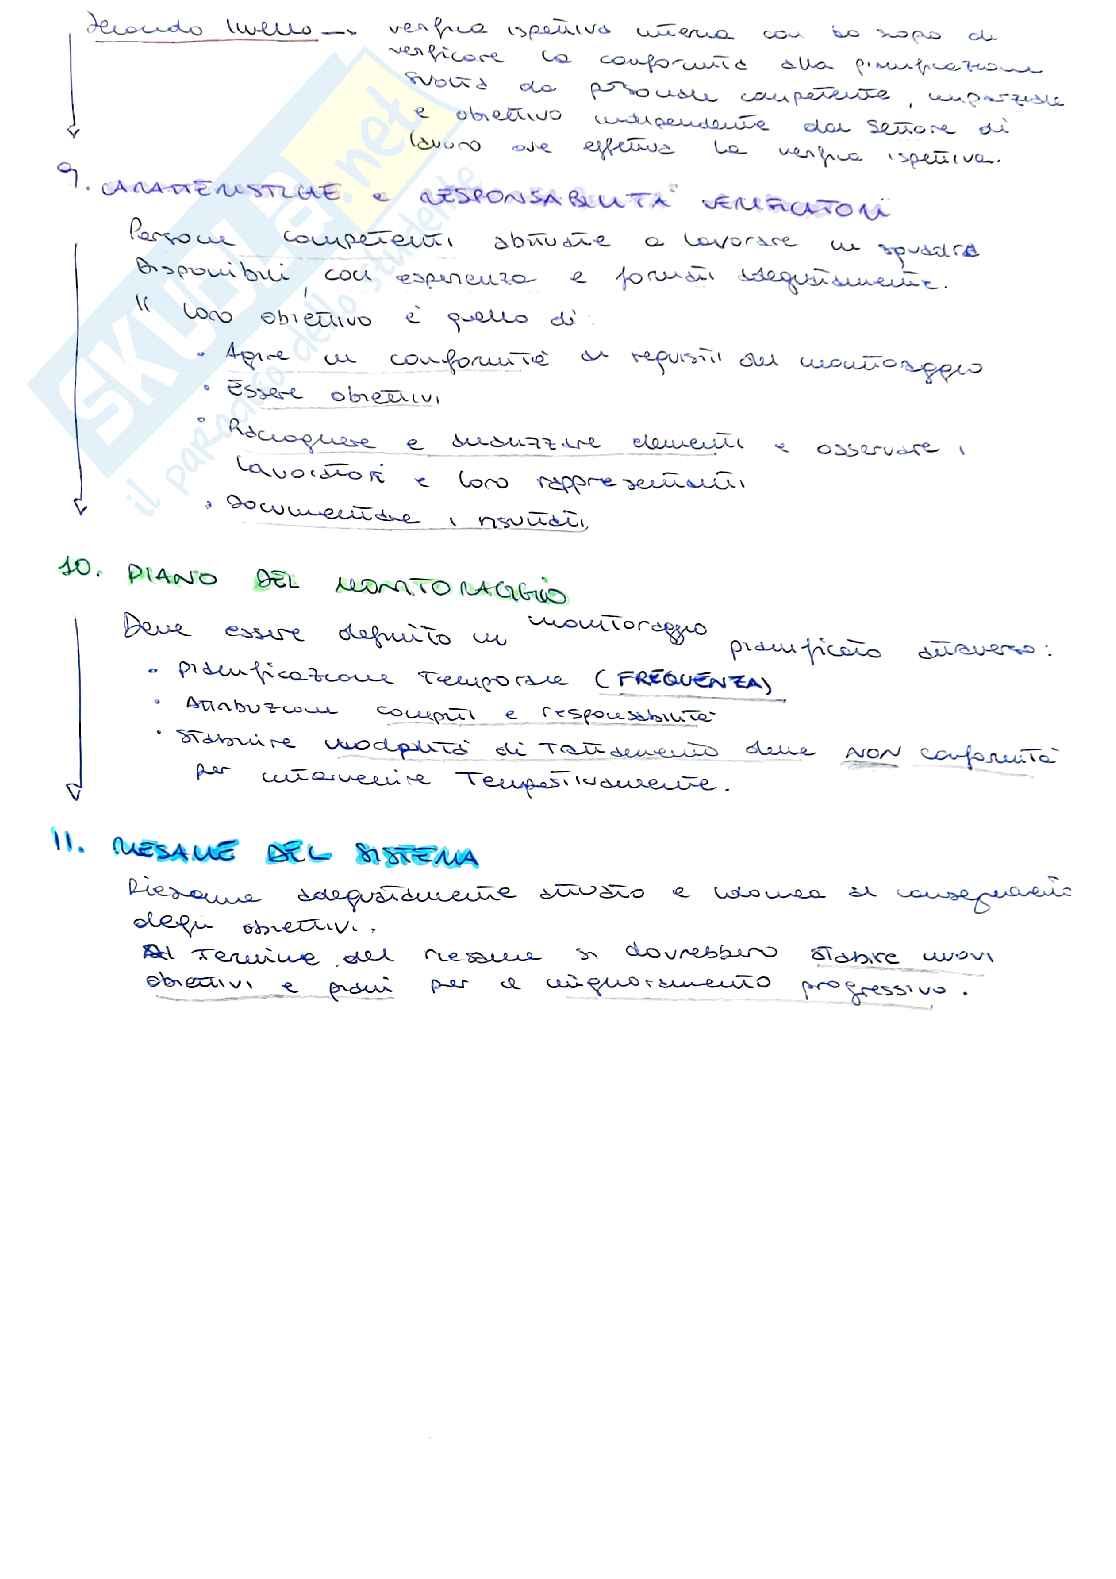 Secondo livello → verifica ispettiva interna con lo scopo di
verificare la conformità alla pianificazione
svolta da personale competente, imparziale
e obiettivo indipendente dal settore di
lavoro ove effettua la verifica ispettiva.
9. CARATTERISTICHE e RESPONSABILITA' VERIFICATORI
Persone competenti abituate a lavorare in squadra
Disponibili, con esperienza e formati adeguatamente.
Il loro obiettivo è quello di:
• Agire in conformità ai requisiti del monitoraggio
• Essere obiettivi
• Raccogliere e analizzare elementi e osservare i
lavoratori e loro rappresentanti
• Documentare i risultati
10. PIANO DEL MONITORAGGIO
Deve essere definito un monitoraggio pianificato attraverso:
• pianificazione temporale (FREQUENZA)
• Attribuzione compiti e responsabilità
• Stabilire modalità di trattamento delle NON conformità
per intervenire tempestivamente.
11. RIESAME DEL SISTEMA
Riesame adeguatamente attuato e idoneo al conseguimento
degli obiettivi.
Al termine del riesame si dovrebbero stabilire nuovi
obiettivi e piani per il miglioramento progressivo.
SKUOLA.net
il paradiso dello studente